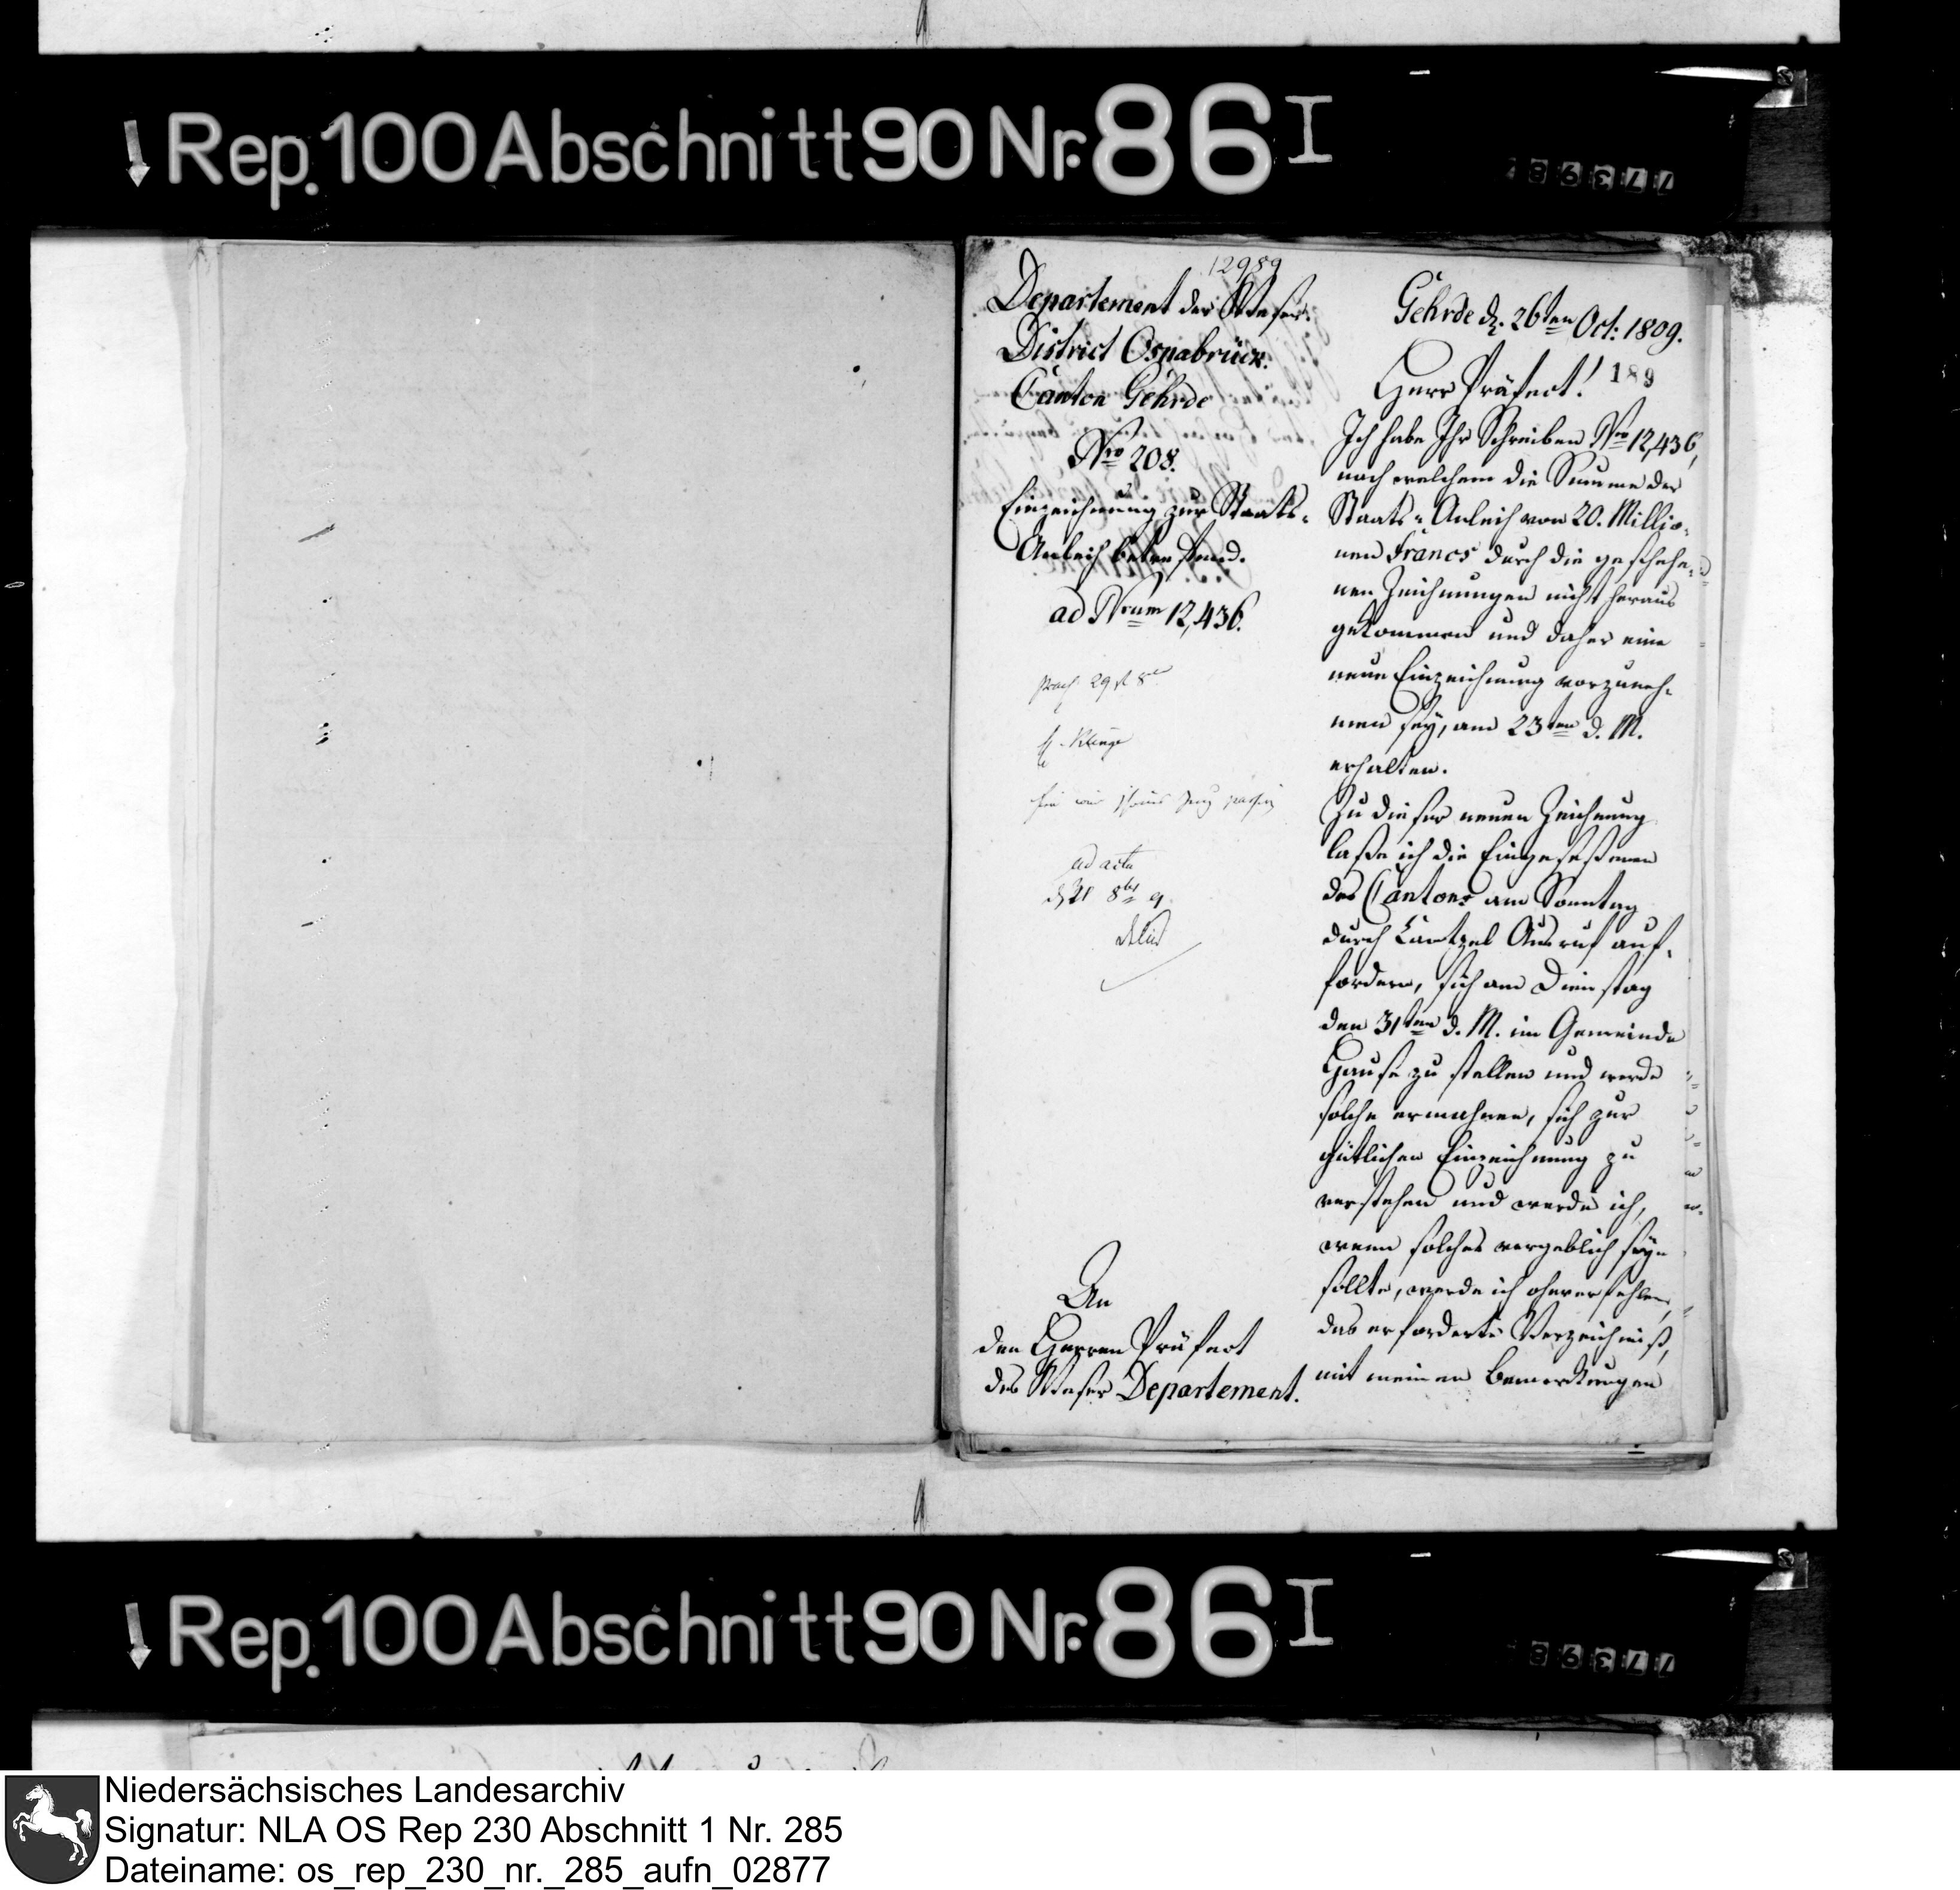 Rep. 100 Abschnitt 90 Nr. 86 I
12989
Departement der Weser.
District Osnabrück.
Canton Gehrde
Nro 208.
Einzeichnung zur Staats-
Anleih betreffend.
ad Nrum 12,436.
ad acta
An
den Herren Präfect
des Weser Departement.
Gehrde d. 26ten Oct: 1809.
Herr Präfect!
189
Ich habe Ihr Schreiben Nro 12,436,
nach welchem die Summe der
Staats-Anleih von 20. Millio-
nen Francs durch die geschehe-
nen Zeichnungen nicht heraus
gekommen und daher eine
neue Einzeichnung vorzuneh-
men sey, am 23ten d. M.
erhalten.
Zu dieser neuen Zeichnung
laße ich die Eingeseßenen
des Cantons am Sonntag
durch Cantzel Ausruf auf-
fordern, sich am Dienstag
den 31ten d. M. im Gemeinde
Hause zu stellen und werde
solche ermahnen, sich zur
gütlichen Einzeichnung zu
verstehen und werde ich,
wenn solches vergeblich seyn
sollte, werde ich ohnverfehlen,
das erforderte Verzeichniß,
mit meinen Bemerkungen
Rep. 100 Abschnitt 90 Nr. 86 I
Niedersächsisches Landesarchiv
Signatur: NLA OS Rep 230 Abschnitt 1 Nr. 285
Dateiname: os_rep_230_nr._285_aufn_02877